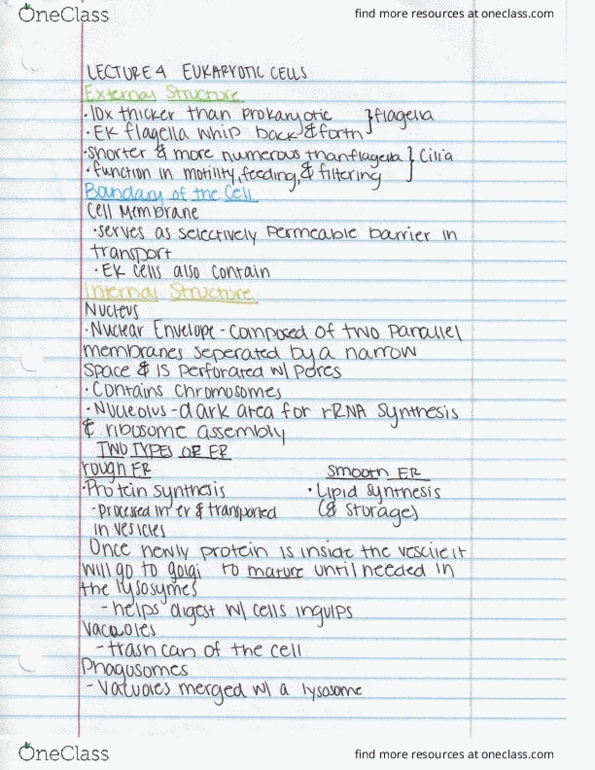 OneClass
find more resources at oneclass.com
LECTURE 4 EUKARYOTIC CELLS
External Structure
·10x thicker than prokaryotic }flagella
·EK flagella whip back & forth
·shorter & more numerous than flagella } Cilia
·function in motility, feeding, & filtering
Boundary of the Cell
Cell Membrane
·serves as selectively permeable barrier in
transport
·EK cells also contain
Internal Structure
Nucleus
·Nuclear Envelope - composed of two parallel
membranes seperated by a narrow
space & is perforated w/ pores
·Contains chromosomes
·Nucleolus - dark area for rRNA synthesis
& ribosome assembly
TWO TYPES OF ER
rough ER smooth ER
·Protein synthesis ·Lipid synthesis
-processed in er & transported (& storage)
in vesicles
Once newly protein is inside the vesicle it
will go to golgi to mature until needed in
the lysosymes
-helps digest w/ cells ingulps
Vacuoles
-trash can of the cell
Phagosomes
-Vacuoles merged w/ a lysosome
OneClass
find more resources at oneclass.com